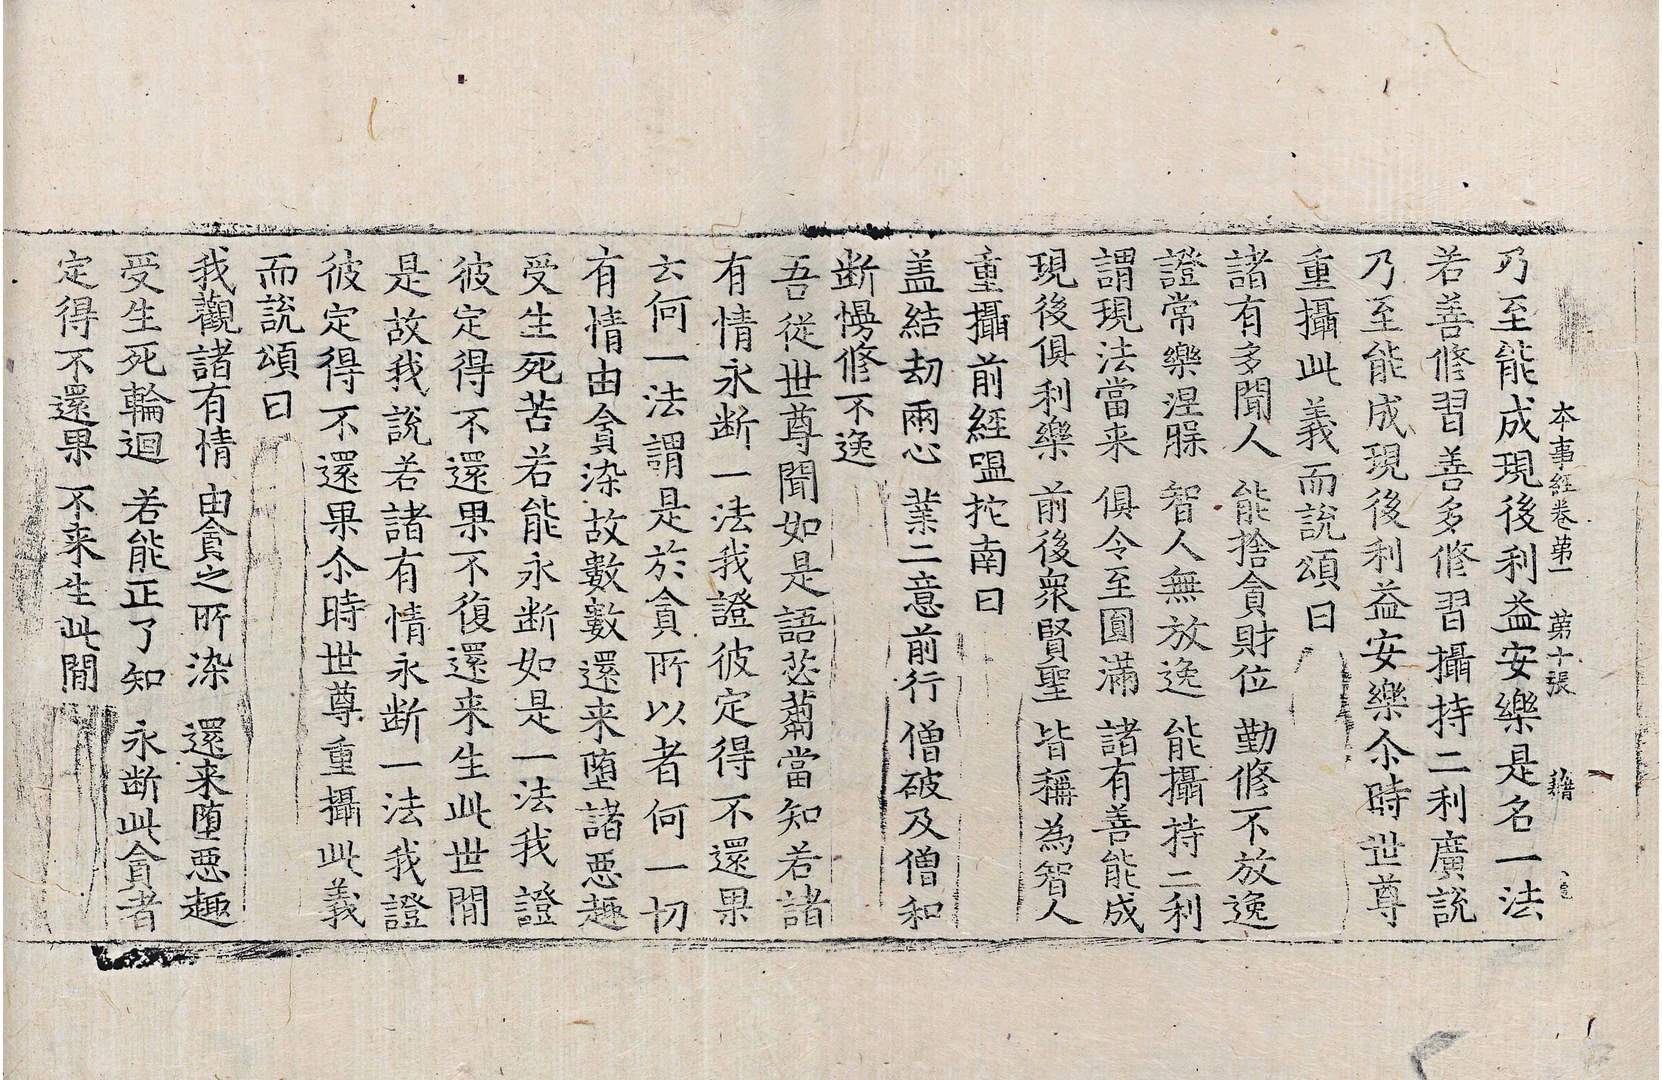 本事經卷第一　第十張　藉
乃至能成現後利益安樂是名一法
若善修習善多修習攝持二利廣說
乃至能成現後利益安樂尒時世尊
重攝此義而說頌曰
諸有多聞人　能捨貪財位　勤修不放逸
證常樂涅槃　智人無放逸　能攝持二利
謂現法當来　俱令至圓滿　諸有善能成
現後俱利樂　前後衆賢聖　皆稱為智人
重攝前經嗢拕南曰
盖結劫兩心　業二意前行　僧破及僧和
断慢修不逸
吾從世尊聞如是語苾蒭當知若諸
有情永断一法我證彼定得不還果
云何一法謂是於貪所以者何一切
有情由貪染故數數還来墮諸惡趣
受生死苦若能永断如是一法我證
彼定得不還果不復還来生此世間
是故我說若諸有情永断一法我證
彼定得不還果尒時世尊重攝此義
而說頌曰
我觀諸有情　由貪之所染　還来墮惡趣
受生死輪迴　若能正了知　永断此貪者
定得不還果　不来生此間